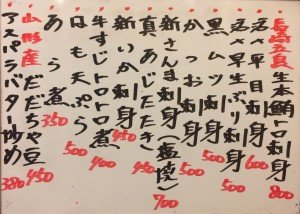 長崎五島 生本鮪トロ刺身 800
活〆平目刺身 600
活〆早生ぶり刺身 500
黒ムツ刺身 500
かつお刺身 500
新さんま刺身(塩焼) 700
真あじたたき 450
新いか刺身 450
牛すじトロトロ煮 400
はも天ぷら 500
あら煮 350
山形産 だだちゃ豆 450
アスパラバター炒め 380